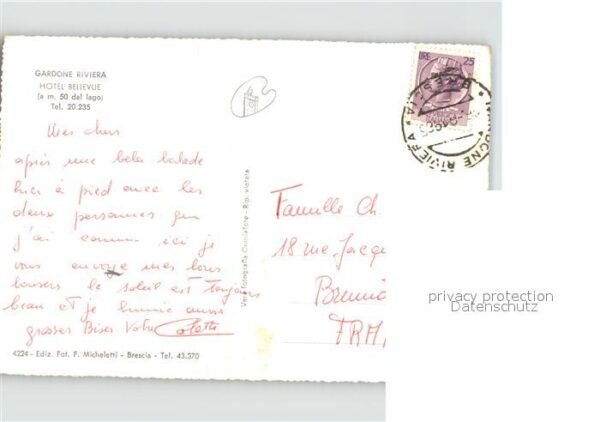 GARDONE RIVIERA
HOTEL BELLEVUE
(a m. 50 dal lago)
Tel. 20.235
Mes chers
après une belle balade
hier à pied avec les
deux personnes que
j'ai connu ici je
vous envoye mes bons
baisers le soleil est toujours
beau et je bunnie aussi
grosses Bises Votre Colette
4224 - Ediz. Fot. P. Micheletti - Brescia - Tel. 43.370
Vera Fotografia - Riproduzione Vietata
LIRE 25
BRESCIA
RIVIERA
Famille Ch
18 rue Jacq
FRA
privacy protection
Datenschutz